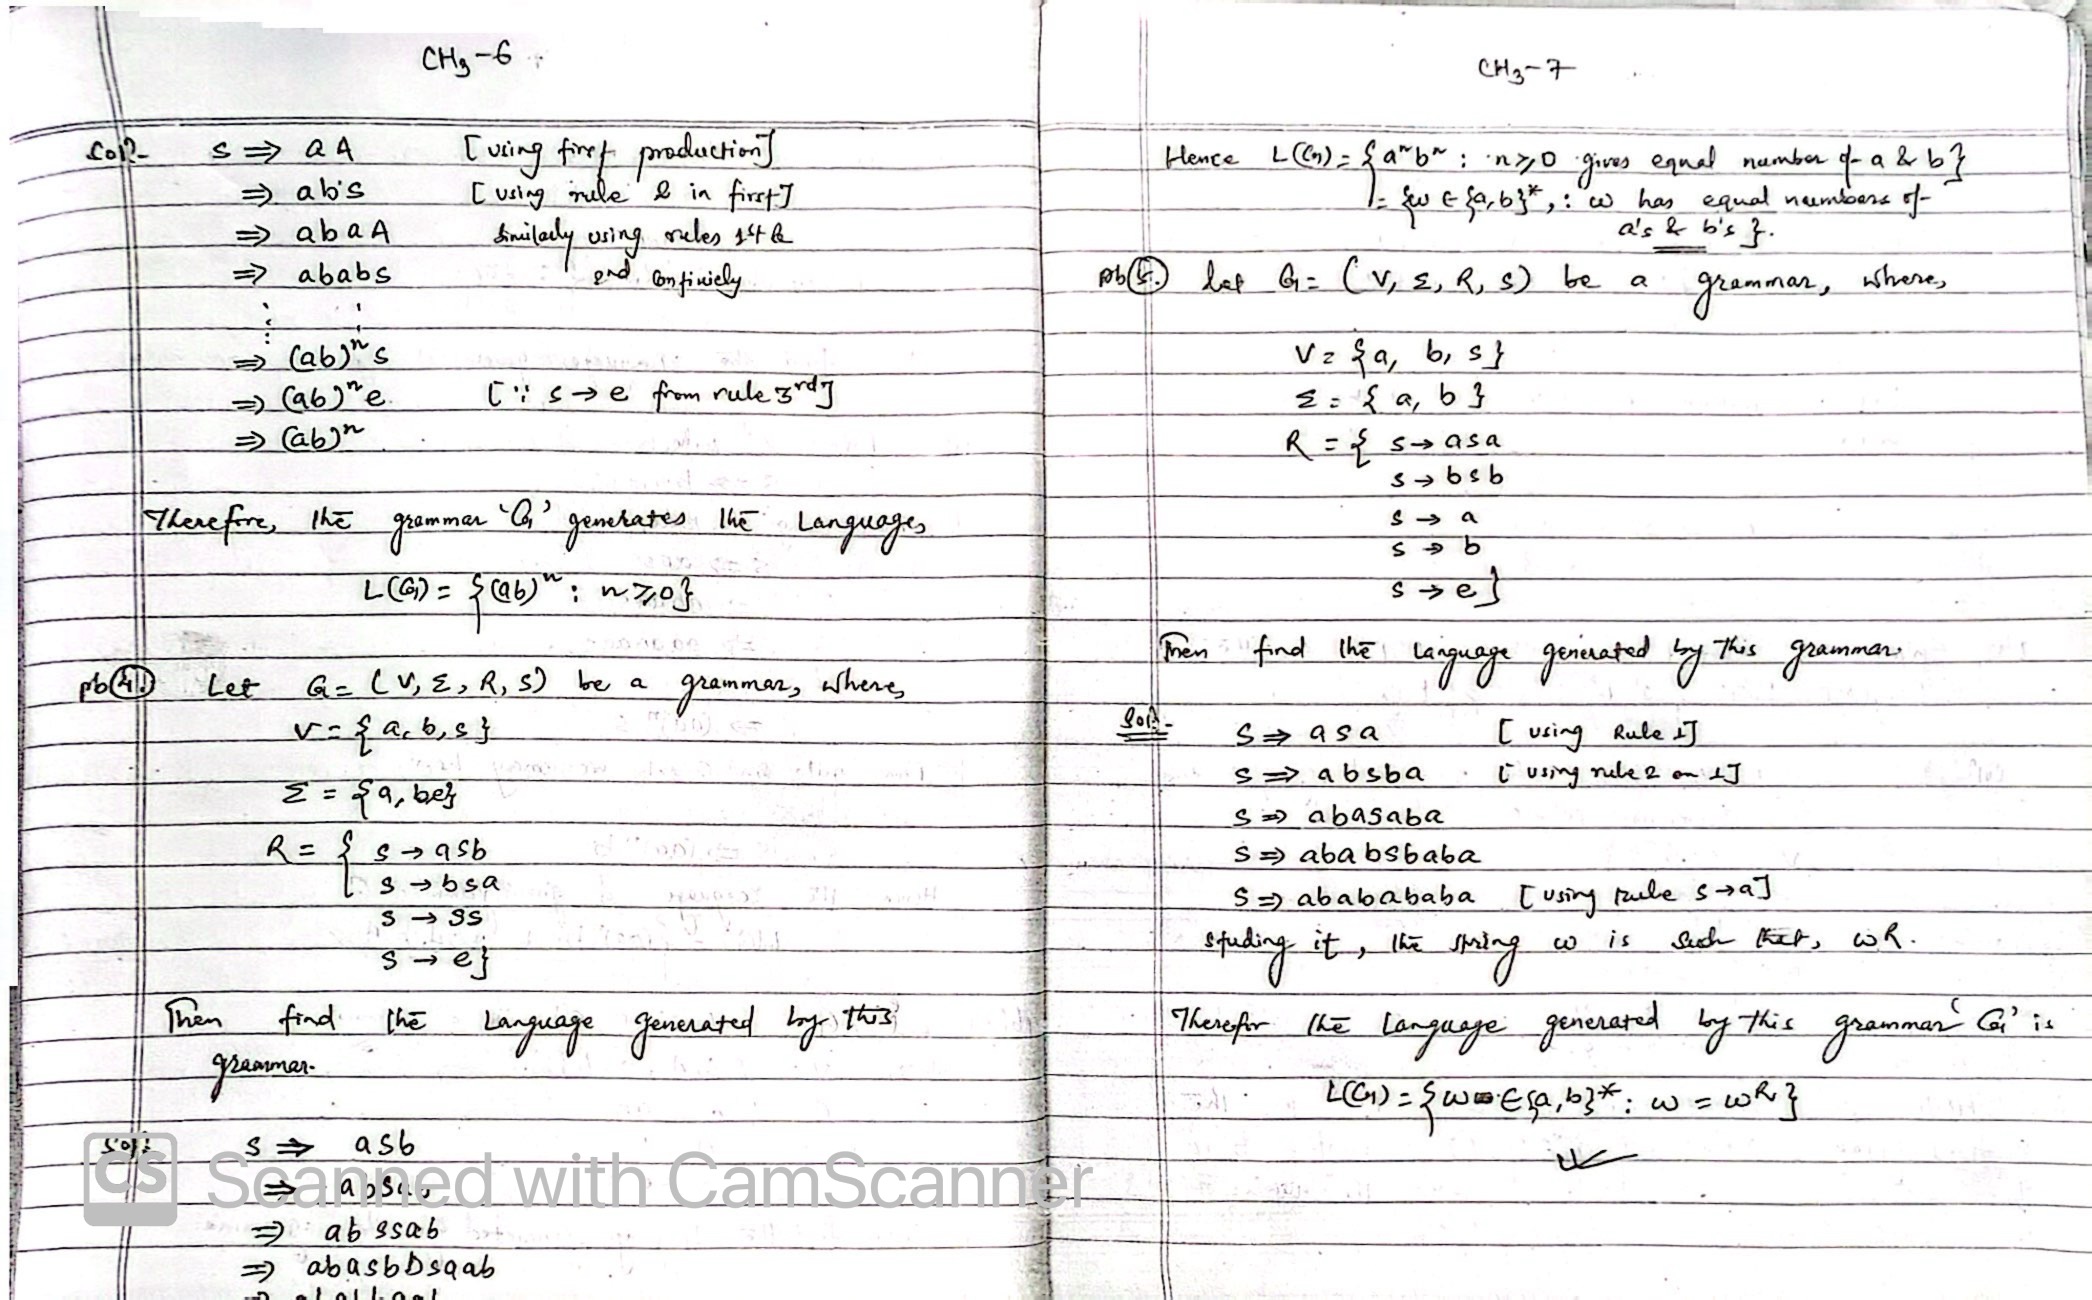 CH3-6
Soln- S ⇒ aA [using first production]
⇒ abS [using rule 2 in first]
⇒ abaA Similarly using rules 1st &
⇒ ababS 2nd
⇒ (ab)ⁿ S
⇒ (ab)ⁿ e [∵ S → e from rule 3rd]
⇒ (ab)ⁿ
Therefore, the grammar 'G' generates the Language,
L(G) = {(ab)ⁿ : n ≥ 0}
pb(4.) Let G = (V, Σ, R, S) be a grammar, where,
V = {a, b, S}
Σ = {a, b, e}
R = { S → aSb
S → bSa
S → SS
S → e}
Then find the Language generated by this
grammar.
Soln: S ⇒ aSb
⇒ abSab
⇒ abSSab
⇒ abaSbbSaab
CS Scanned with CamScanner
CH3-7
Hence L(G) = {aⁿbⁿ : n ≥ 0 gives equal number of a & b}
= {w ∈ {a, b}*, : w has equal numbers of
a's & b's}.
pb(5.) Let G = (V, Σ, R, S) be a grammar, where,
V = {a, b, S}
Σ = {a, b}
R = { S → aSa
S → bSb
S → a
S → b
S → e}
Then find the Language generated by this grammar.
Soln- S ⇒ aSa [using Rule 1]
S ⇒ abSba [using rule 2 on 1]
S ⇒ abaSaba
S ⇒ ababSbaba
S ⇒ ababababa [using rule S → a]
Studing it, the string w is such that, wR.
Therefor the Language generated by this grammar 'G' is
L(G) = {w ∈ {a, b}* : w = wᴿ}